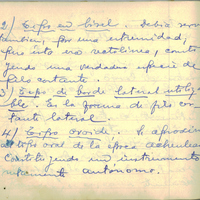 2) Cuspo en bisel. Debió servir
también, por una extremidad,
pero esto era rectolineo, consti
yendo una verdadera especie de
filo cortante.
3) Cuspo de borde lateral utiliza
ble. Es la forma de filo cor
tante lateral
4) Cuspo ovoide. Se aproxima
al tipo oral de la época achelense
Constituyendo un instrumento
netamente autónomo.